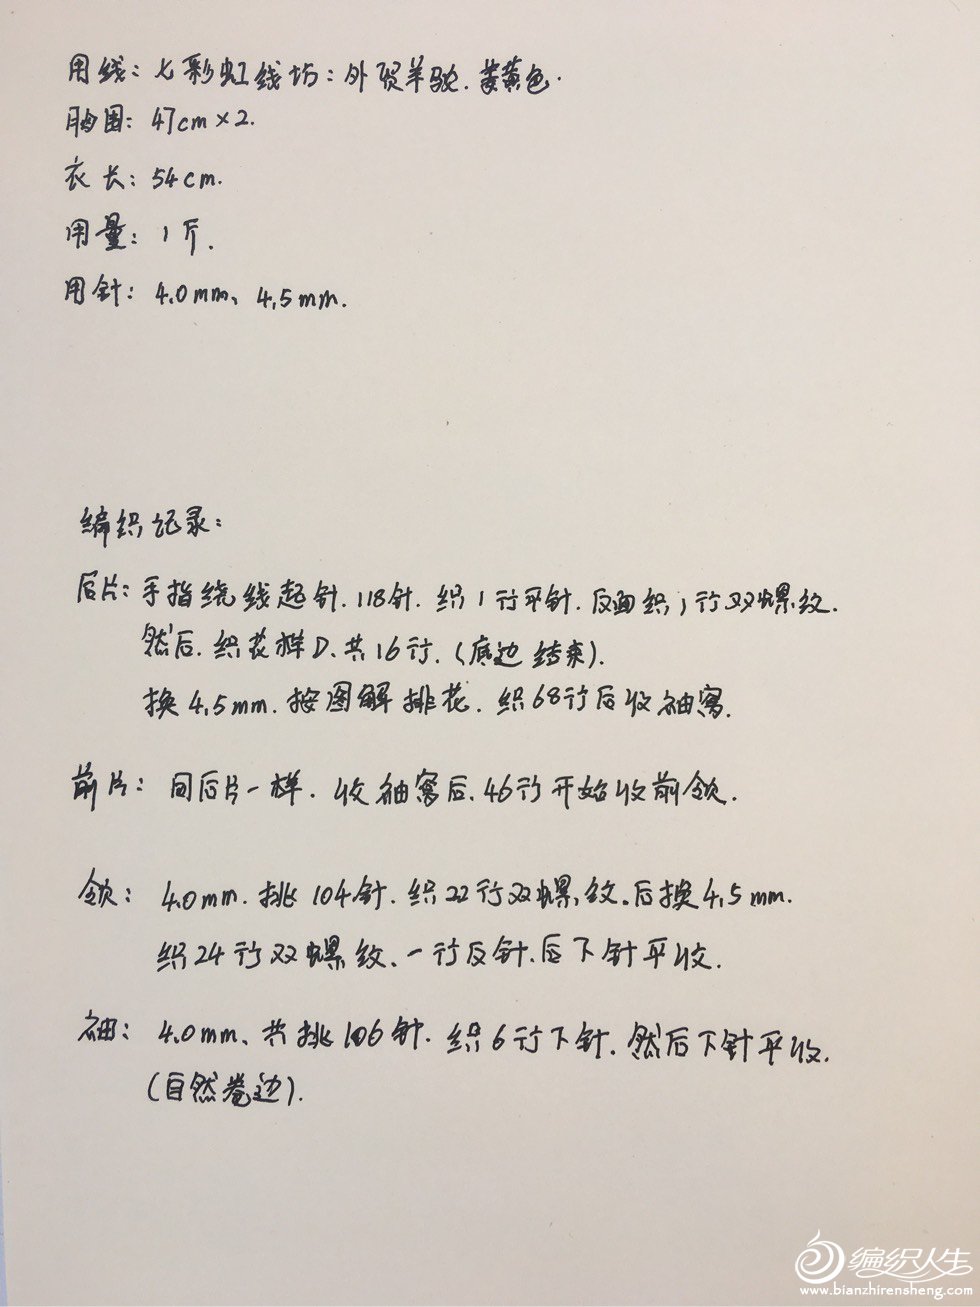 用线：七彩虹线坊：外贸羊驼.姜黄色.
胸围：47cm×2.
衣长：54cm.
用量：1斤.
用针：4.0mm、4.5mm.
编织记录：
后片：手指绕线起针.118针.织1行平针.反面织1行双螺纹.
然后.织花样D.共16行.(底边结束).
换4.5mm.按图解排花.织68行后收袖窝.
前片：同后片一样.收袖窝后.46行开始收前领.
领：4.0mm.挑104针.织22行双螺纹.后换4.5mm.
织24行双螺纹、一行反针.后下针平收.
袖：4.0mm、共挑106针.织6行下针.然后下针平收.
(自然卷边).
编织人生
www.bianzhirensheng.com